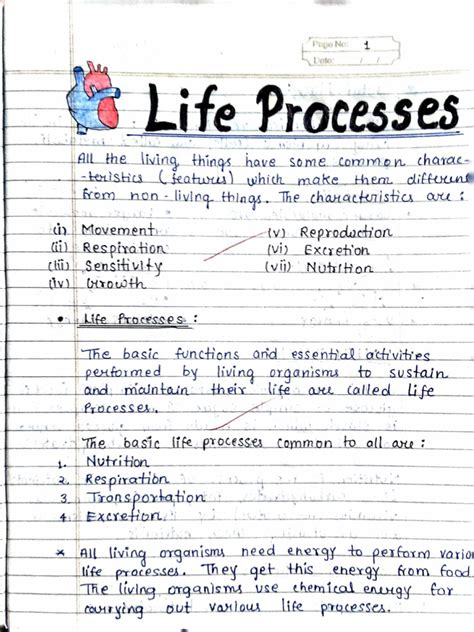 Page No: 1
Date: / /
Life Processes
All the living things have some common charac-
-teristics (features) which make them different
from non-living things. The characteristics are :
(i) Movement
(ii) Respiration
(iii) Sensitivity
(iv) Growth
(v) Reproduction
(vi) Excretion
(vii) Nutrition
• Life Processes :
The basic functions and essential activities
performed by living organisms to sustain
and maintain their life are called Life
Processes.
The basic life processes common to all are :
1. Nutrition
2. Respiration
3. Transportation
4. Excretion
* All living organisms need energy to perform vario
life processes. They get this energy from food.
The living organisms use chemical energy for
carrying out various life processes.